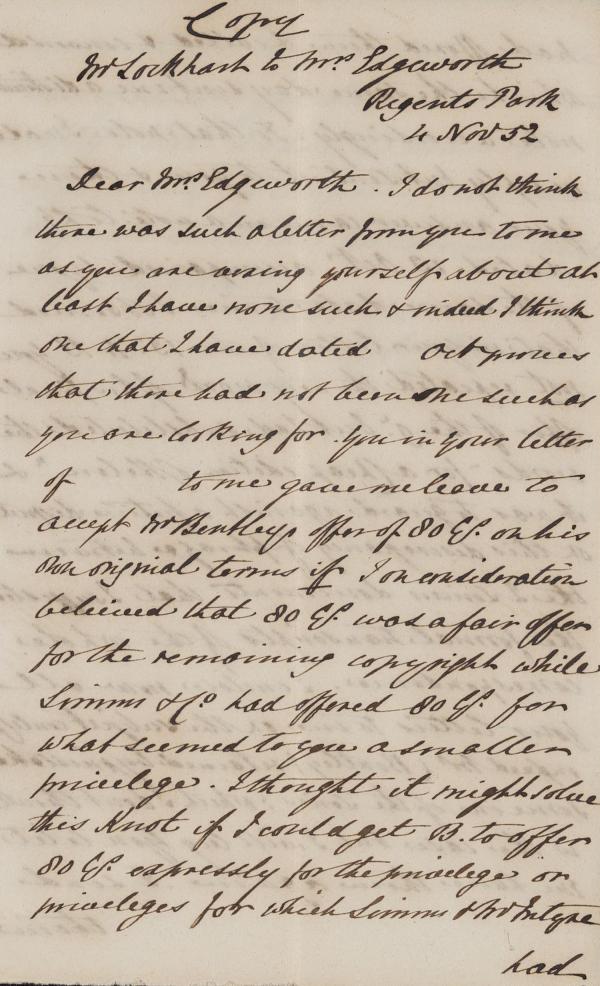 Copy
Mr Lockhart to Mrs Edgeworth
Regents Park
4 Nov 52
Dear Mrs Edgeworth. I do not think
there was such a letter from you to me
as you are vexing yourself about at
least I have none such & indeed I think
one that I have dated Oct proves
that there had not been one such as
you are looking for. You in your letter
of to me gave me leave to
accept Mr Bentleys offer of 80 Gs. on his
own original terms if I on consideration
believed that 80 Gs. was a fair offer
for the remaining copyright while
Simms & Co had offered 80 Gs. for
what seemed to you a smaller
privilege. I thought it might solve
this Knot if I could get B. to offer
80 Gs. expressly for the privilege or
privileges for which Simms & McIntyre
had